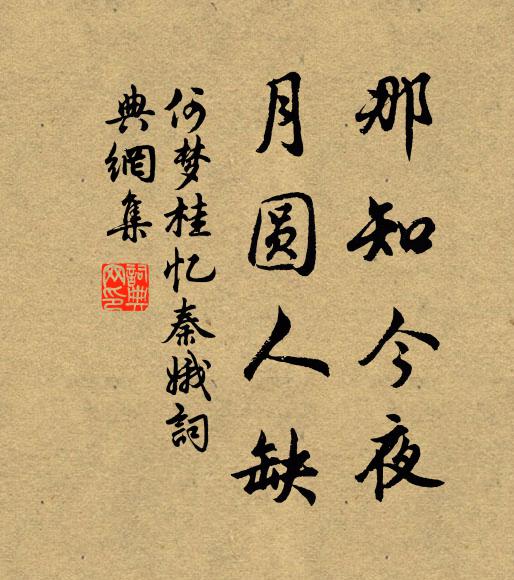 那知今夜
月圆人缺
何梦桂忆秦娥詞
典網集
詞典
网印